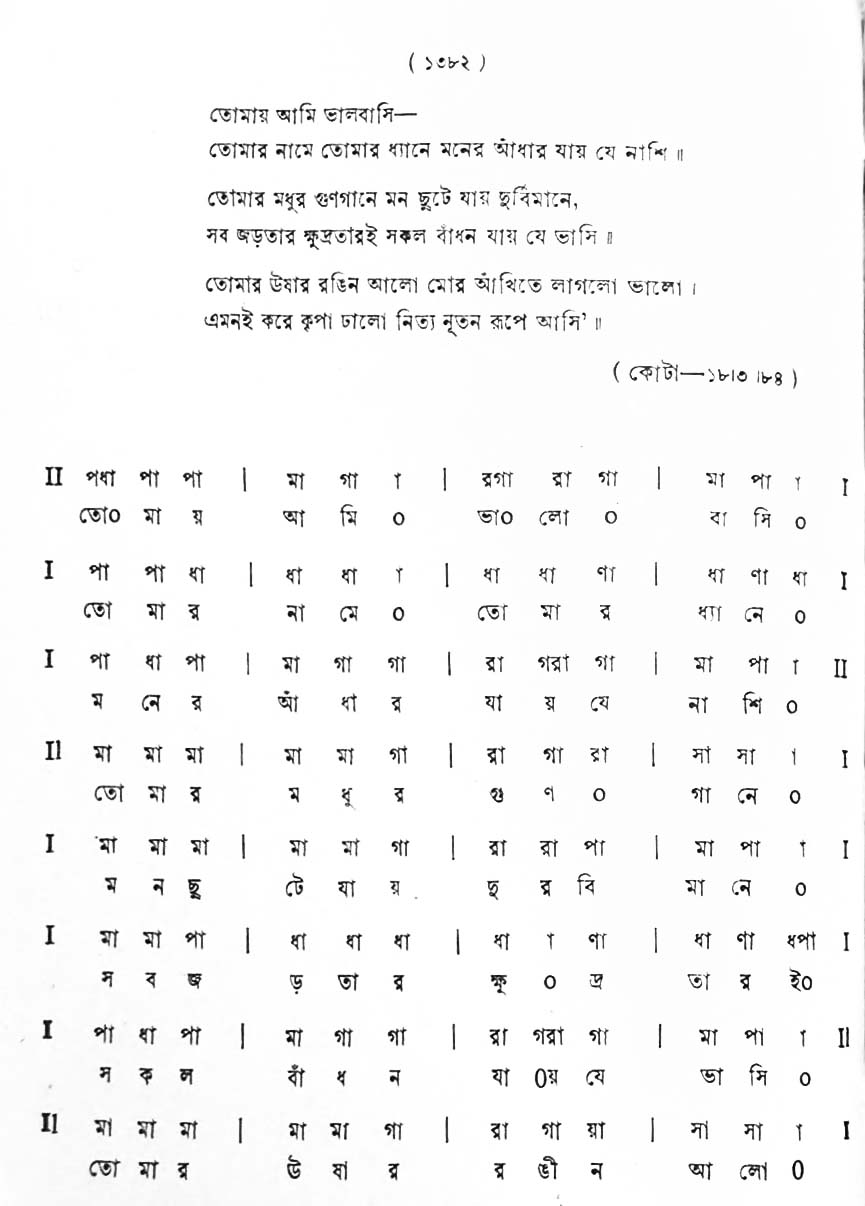 ( ১৩৮২ )
তোমায় আমি ভালবাসি—
তোমার নামে তোমার ধ্যানে মনের আঁধার যায় যে নাশি ॥
তোমার মধুর গুণগানে মন ছুটে যায় ছুর্বিমানে,
সব জড়তার ক্ষুদ্রতারই সকল বাঁধন যায় যে ভাসি ॥
তোমার উষার রঙিন আলো মোর আঁখিতে লাগলো ভালো ।
এমনই করে কৃপা ঢালো নিত্য নূতন রূপে আসি' ॥
( কোটা—১৮।৩।৮৪ )
II পধা পা পা | মা গা া | রগা রা গা | মা পা া I
তো০ মা য় আ মি ০ ভা০ লো ০ বা সি ০
I পা পা ধা | ধা ধা া | ধা ধা ণা | ধা ণা ধা I
তো মা র না মে ০ তো মা র ধ্যা নে ০
I পা ধা পা | মা গা গা | রা গরা গা | মা পা া II
ম নে র আঁ ধা র যা য় যে না শি ০
II মা মা মা | মা মা গা | রা গা রা | সা সা া I
তো মা র ম ধু র গু ণ ০ গা নে ০
I মা মা মা | মা মা গা | রা রা পা | মা পা া I
ম ন ছু টে যা য় ছু র বি মা নে ০
I মা মা পা | ধা ধা ধা | ধা া ণা | ধা ণা ধপা I
স ব জ ড় তা র ক্ষু ০ দ্র তা র ই০
I পা ধা পা | মা গা গা | রা গরা গা | মা পা া II
স ক ল বাঁ ধ ন যা ০য় যে ভা সি ০
II মা মা মা | মা মা গা | রা গা য়া | সা সা া I
তো মা র উ ষা র র ঙী ন আ লো ০